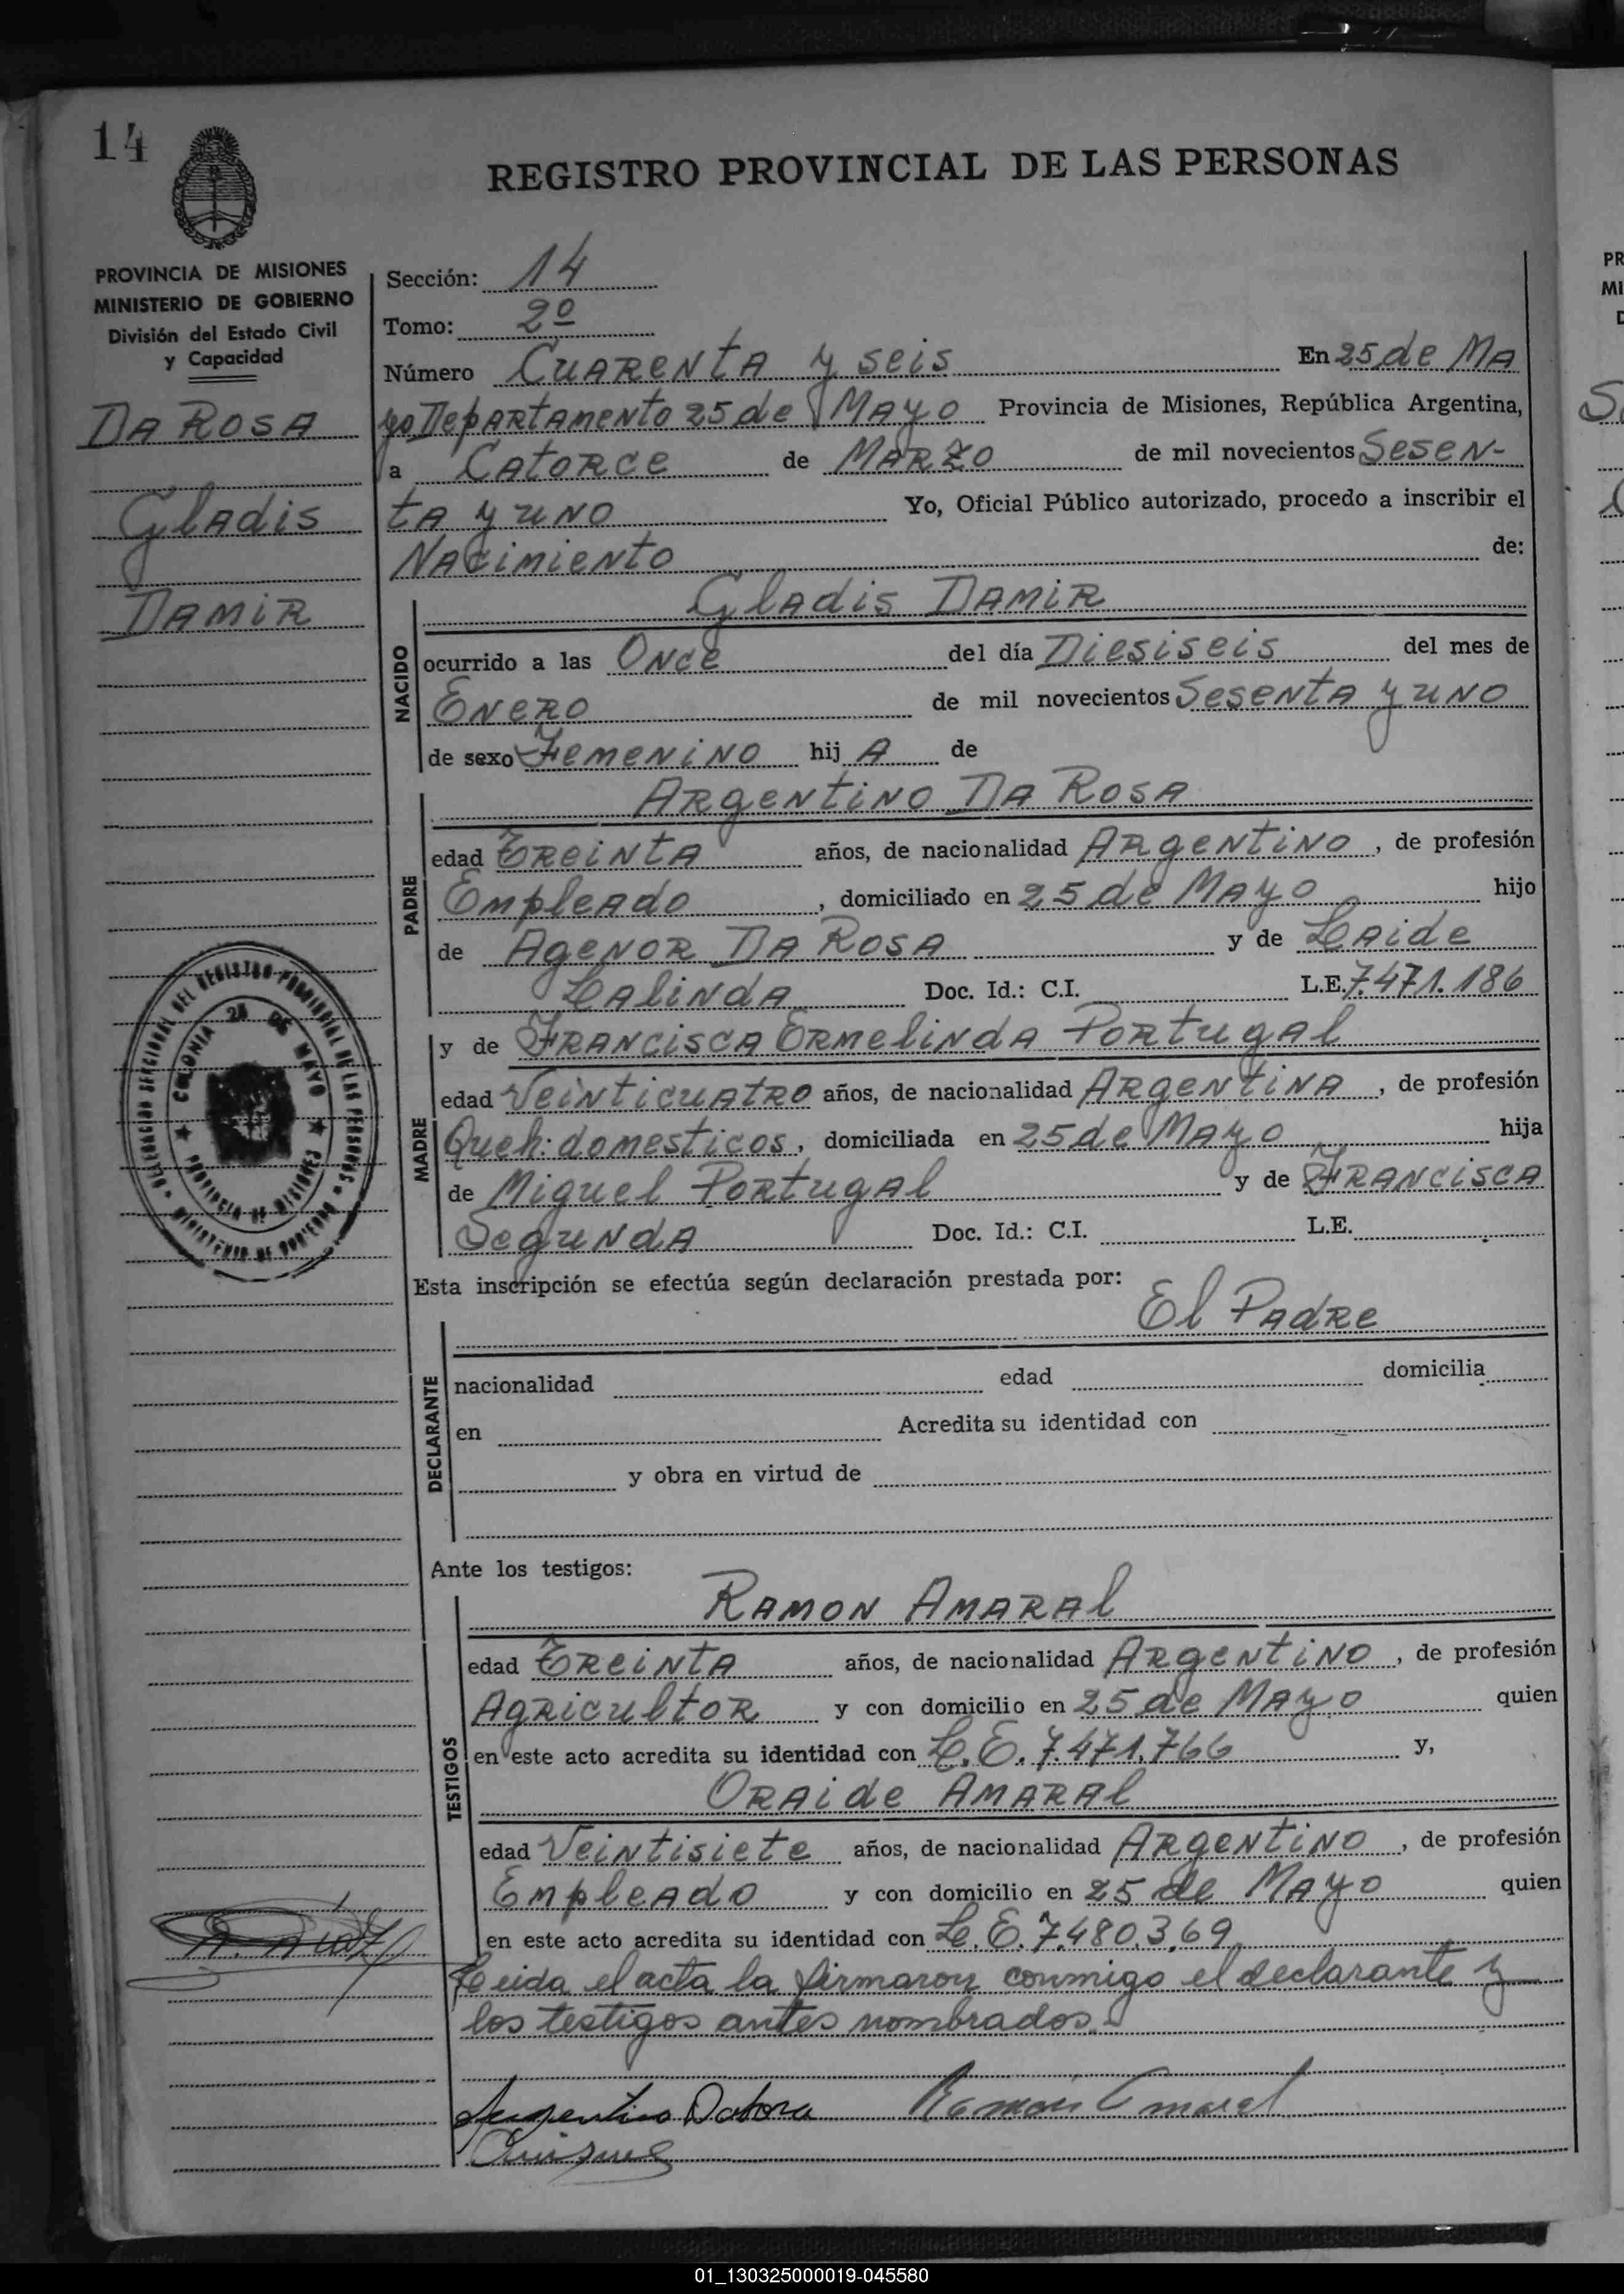 14
REGISTRO PROVINCIAL DE LAS PERSONAS
PROVINCIA DE MISIONES
MINISTERIO DE GOBIERNO
División del Estado Civil
y Capacidad
DA ROSA
Gladis
DAMIR
Sección: 14
Tomo: 2º
Número CUARENTA y seis En 25 de MA
yo Departamento 25 de MAyo Provincia de Misiones, República Argentina,
a CATORCE de MARZO de mil novecientos SESEN-
TA y UNO Yo, Oficial Público autorizado, procedo a inscribir el
NAcimiento de:
NACIDO
Gladis DAMIR
ocurrido a las ONce del día Diesiseis del mes de
ENERO de mil novecientos SesentA y UNO
de sexo FemeNiNO hij A de
PADRE
ARgentiNO DA ROSA
edad TReiNtA años, de nacionalidad ARgentiNO, de profesión
EmpleAdo, domiciliado en 25 de MAyo hijo
de AgeNOR DA ROSA y de LAide
LAliNdA Doc. Id.: C.I. L.E. 7.471.186
MADRE
y de FRANciscA ERmeliNdA PORtugAl
edad VeiNticuAtRO años, de nacionalidad ARgeNtiNA, de profesión
Queh: domesticos, domiciliada en 25 de MAyo hija
de Miguel PORtugAl y de FRANciscA
SeguNdA Doc. Id.: C.I. L.E.
Esta inscripción se efectúa según declaración prestada por:
El PAdRe
DECLARANTE
nacionalidad edad domicilia
en Acredita su identidad con
y obra en virtud de
Ante los testigos:
TESTIGOS
RAMON AMARAl
edad TReiNtA años, de nacionalidad ARgentiNO, de profesión
AgRicultOR y con domicilio en 25 de MAyo quien
en este acto acredita su identidad con L.E. 7.471.766 y,
ORAide AMARAl
edad Veintisiete años, de nacionalidad ARgentiNO, de profesión
EmpleAdo y con domicilio en 25 de MAyo quien
en este acto acredita su identidad con L.E. 7.480.3.69
Leida el acta la firmaron conmigo el declarante y
los testigos antes nombrados.
Argentino Da
Ramón Amaral
COLONIA 25 DE MAYO
PROVINCIA DE MISIONES
MINISTERIO DE GOBIERNO
PR
MI
01_130325000019-045580